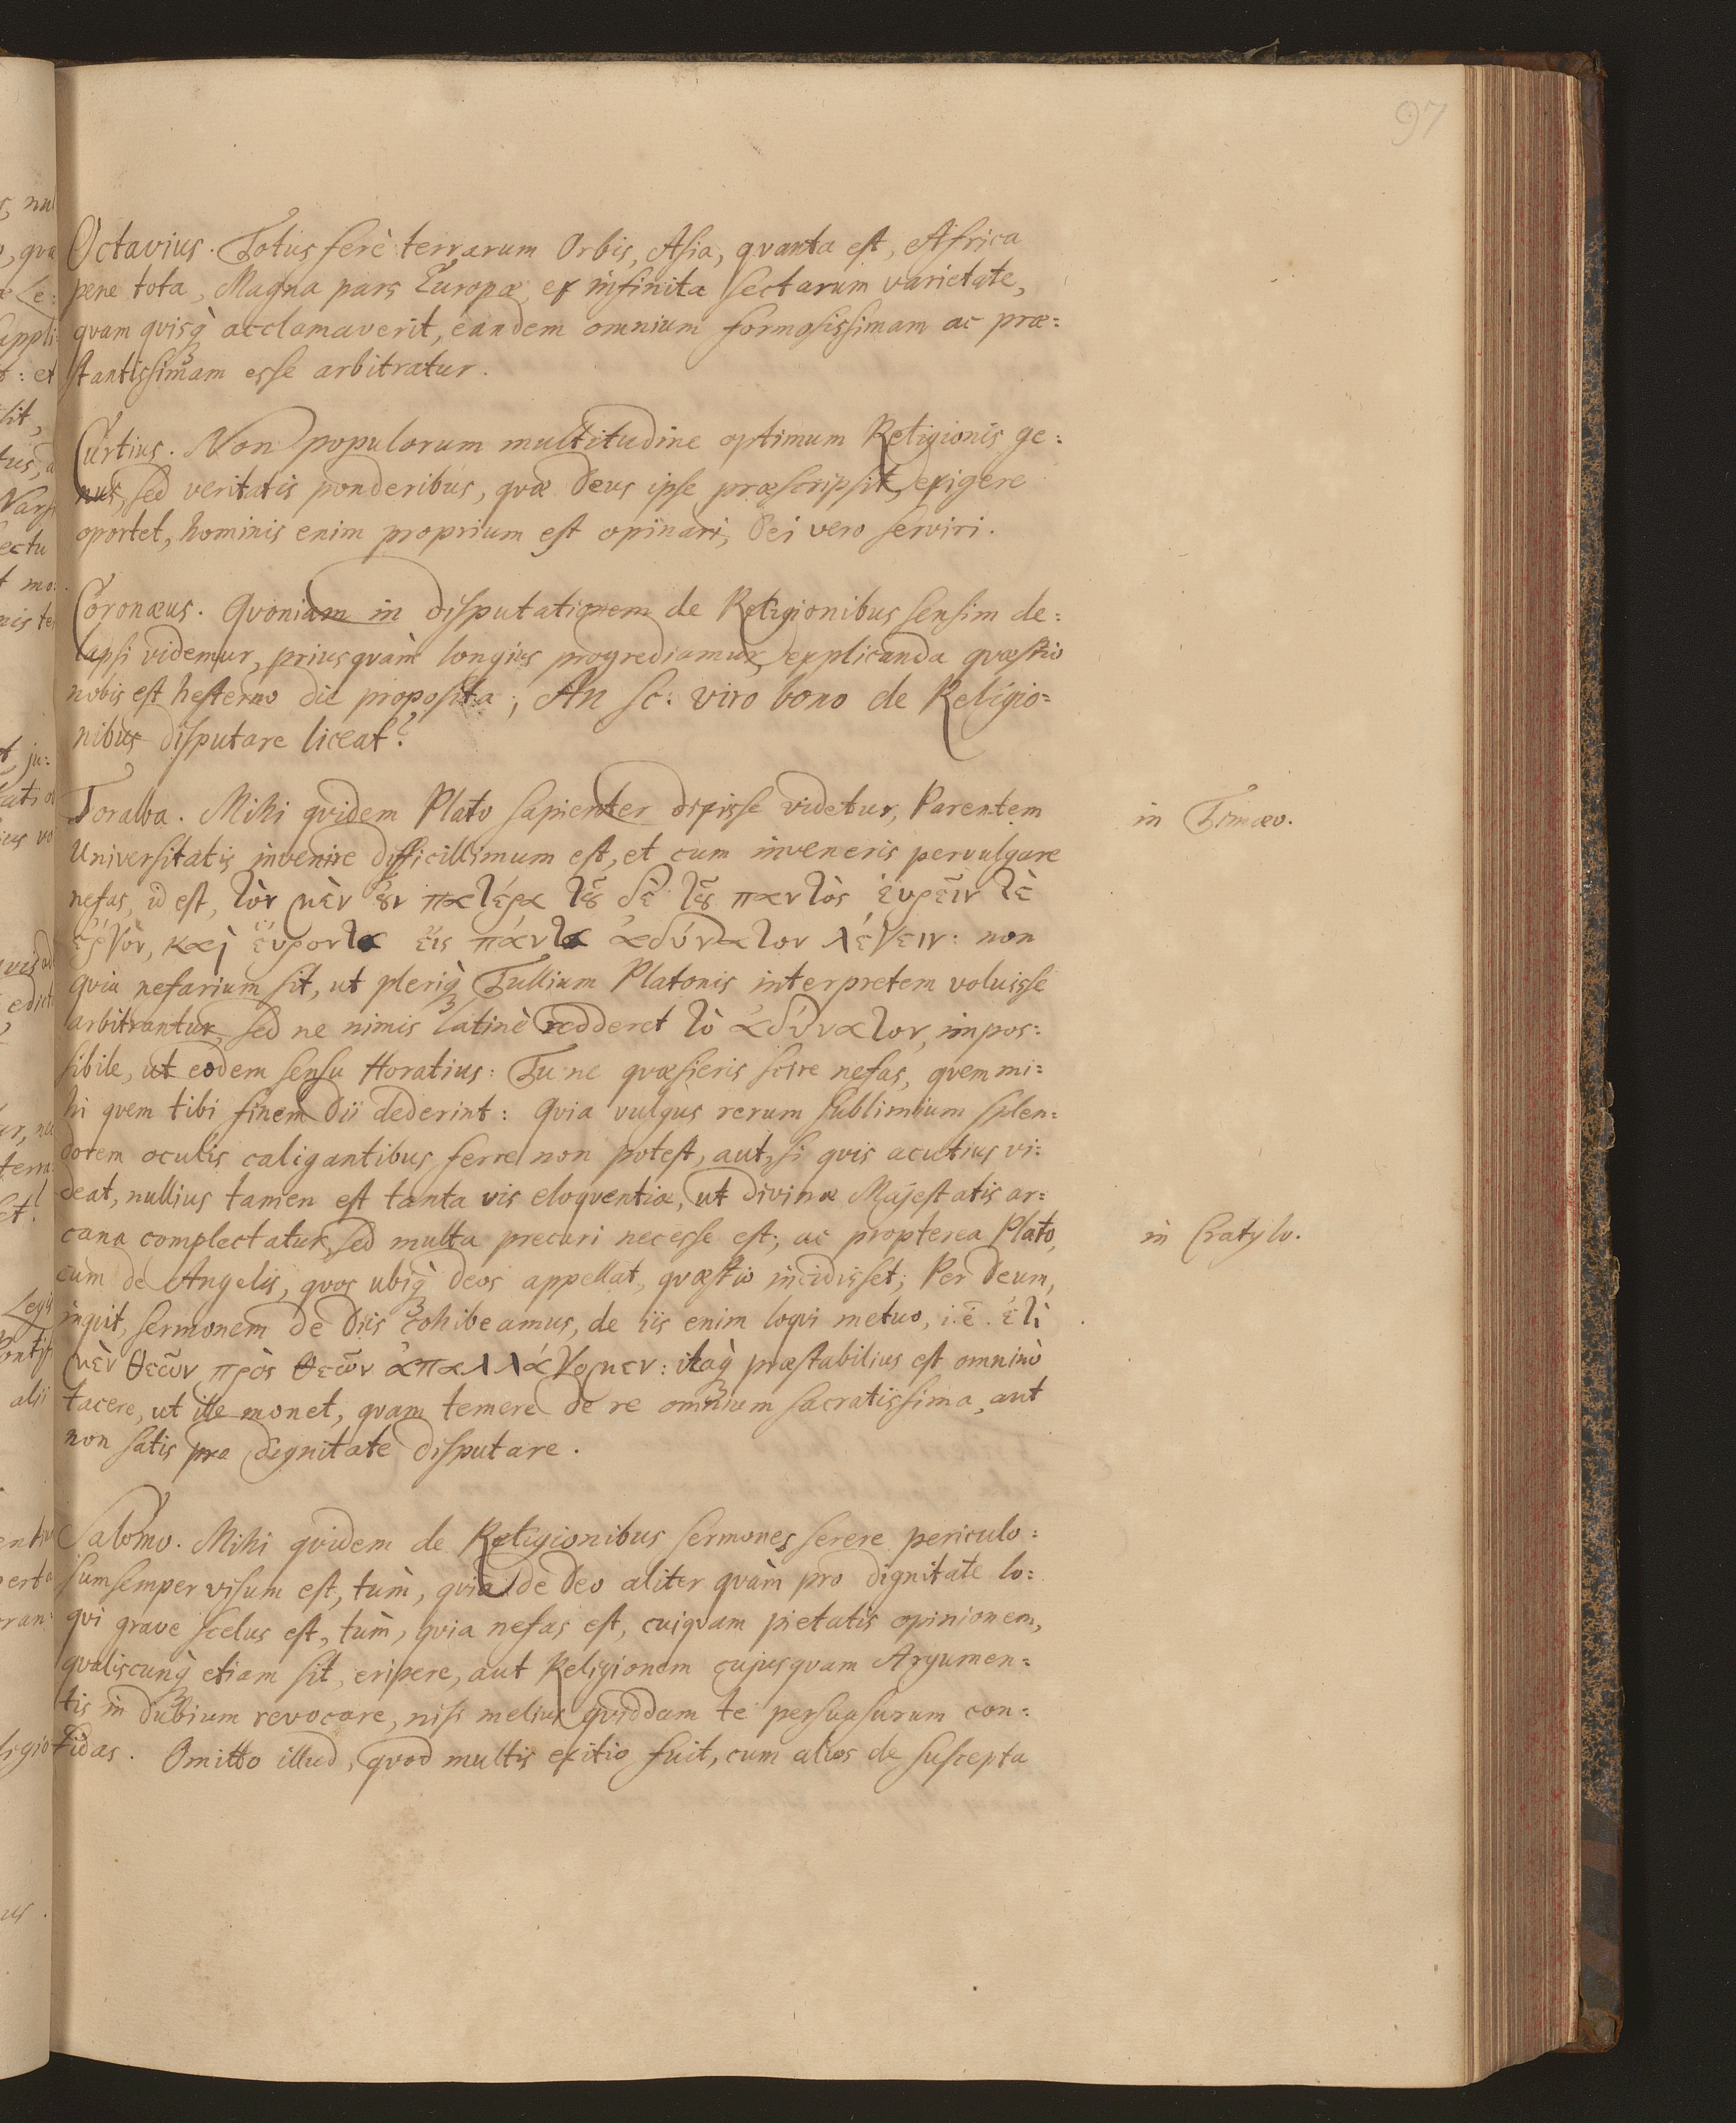 97
Octavius. Totus ferè terrarum Orbis, Asia, qvanta est, Africa
pene tota, Magna pars Europæ, ex infinita sectarum varietate,
qvam qvisq̀ acclamaverit, eandem omnium formosissimam ac præ=
stantissimam esse arbitratur.
Curtius. Non popularum multitudine optimum Religionis ge=
nus, sed veritatis ponderibus, qvæ Deus ipse præscripsit, exigere
oportet, hominis enim proprium est opinari, Dei vero serviri.
Coronæus. Qvoniam in disputationem de Religionibus sensim de=
lapsi videmur, priusqvàm longius progrediamur, explicanda qvæstio
nobis est hesterno die proposita; An sc: viro bono de Religio=
nibus disputare liceat?
Toralba. Mihi qvidem Plato sapienter dixisse videtur, Parentem
in Timæo.
Universitatis invenire difficillimum est, et cum inveneris pervulgare
nefas, id est, τὸν μὲν ȣ̓ν πατέρα τȣ͂ δὲ τȣ͂ παντὸς ἑυρεῖν τὲ
ἔργὸν, καὶ ἕυροντα ἔις πάντα ἀδύνατον λέγειν: non
qvia nefarium sit, ut pleriq̀ Tullium Platonis interpretem voluisse
arbitrantur, sed ne nimis latinè redderet τὸ ἀδύνατον, impos=
sibile, ut eodem sensu Horatius: Tu ne qvæsieris scire nefas, qvem mi=
hi qvem tibi finem Dii dederint: Qvia vulgus rerum sublimium splen=
dorem oculis caligantibus ferre non potest, aut, si qvis acutius vi=
deat, nullius tamen est tanta vis eloqventiæ, ut divinæ Majestatis ar=
cana complectatur, sed multa precari necesse est; ac propterea Plato,
in Cratylo.
cum de Angelis, qvos ubiq̀ deos appellat, qvæstio incidisset; Per Deum,
inqvit, sermonem de Diis cohibeamus, de iis enim loqvi metuo, i.ē. ἐτὶ
μὲν θεῶν πρὸς θεῶν ἀπαλλάγομεν: itaq̀ præstabilius est omninò
tacere, ut ille monet, qvam temere de re omnium sacratissima, aut
non satis pro dignitate disputare.
Salomo. Mihi qvidem de Religionibus sermones serere periculo=
sum semper visum est, tùm, qvia de Deo aliter qvàm pro dignitate lo=
qvi grave scelus est, tùm, qvia nefas est, cuiqvam pietatis opinionem,
qvaliscunq̀ etiam sit, eripere, aut Religionem cujusqvam Argumen=
tis in dubium revocare, nisi melius qviddam te persuasurum con=
fidas. Omitto illud, qvod multis exitio fuit, cum alios de suscepta